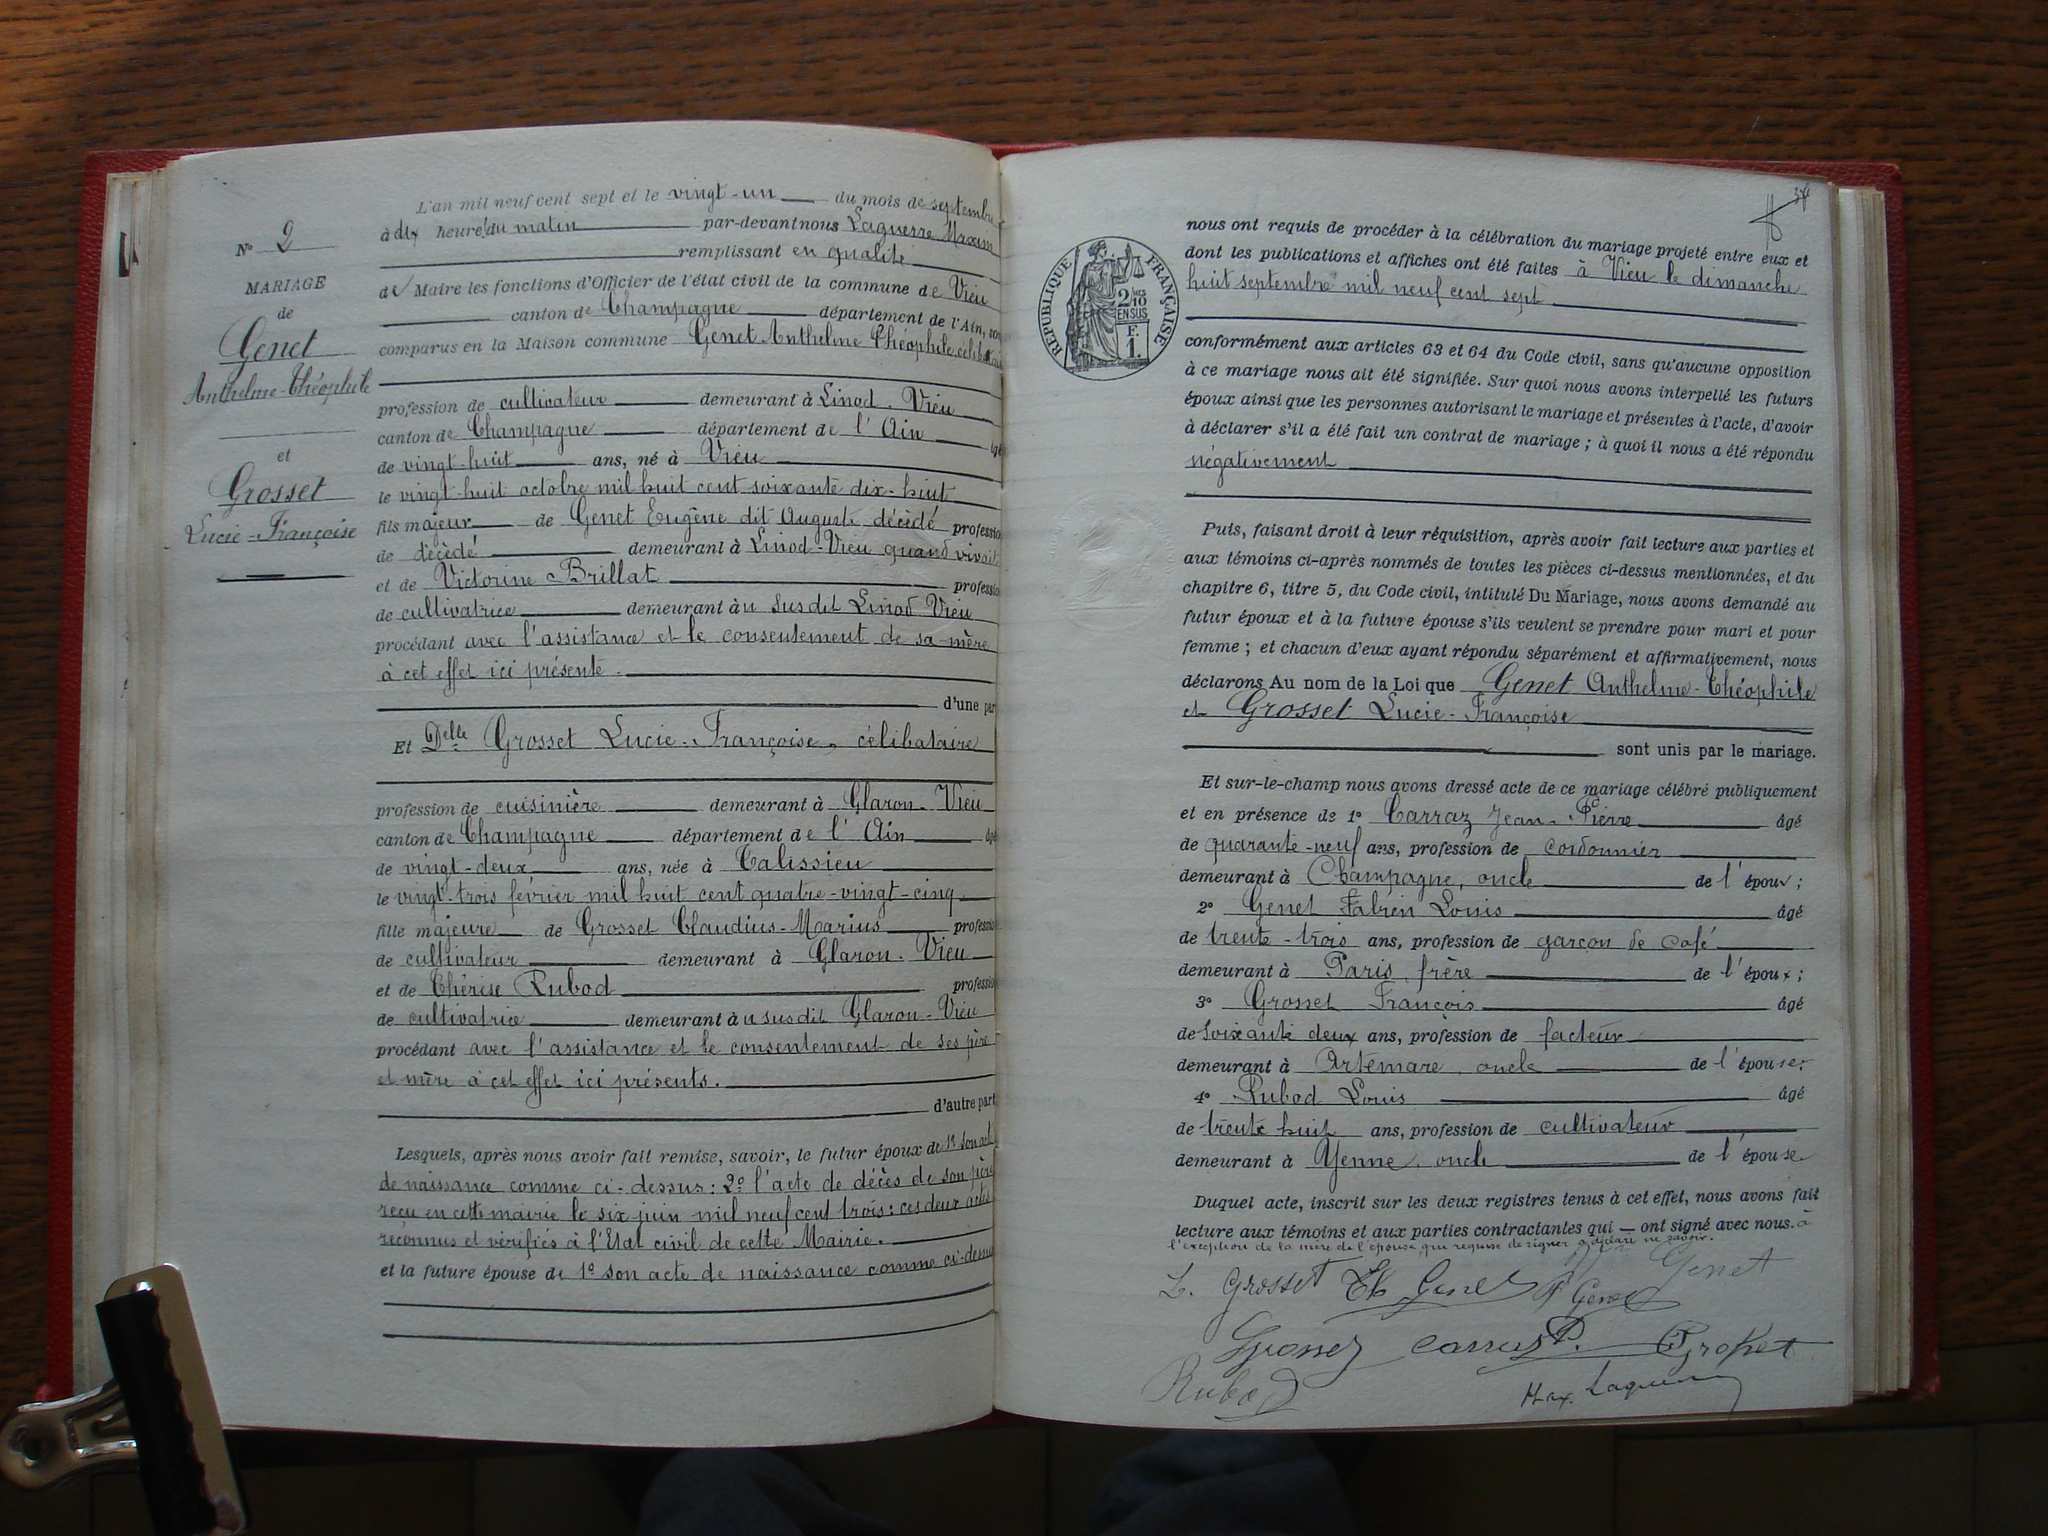 N° 2
MARIAGE
de
Genet
Anthelme-Théophile
et
Grosset
Lucie-Françoise
L'an mil neuf cent sept et le vingt-un du mois de septembre
à dix heure du matin par-devant nous Laguerre Maxim
remplissant en qualité
de Maire les fonctions d'Officier de l'état civil de la commune de Vieu
canton de Champagne département de l'Ain, son
comparus en la Maison commune Genet Anthelme Théophile, célibataire
profession de cultivateur demeurant à Linod. Vieu
canton de Champagne département de l'Ain âgé
de vingt-huit ans, né à Vieu
le vingt-huit octobre mil huit cent soixante dix-huit
fils majeur de Genet Eugène dit Auguste décédé professio
de décédé demeurant à Linod-Vieu quand vivait
et de Victorine Brillat professio
de cultivatrice demeurant au susdit Linod Vieu
procédant avec l'assistance et le consentement de sa mère
à cet effet ici présente.
d'une par
Et Delle Grosset Lucie-Françoise, célibataire
profession de cuisinière demeurant à Glaron-Vieu
canton de Champagne département de l'Ain âgé
de vingt-deux ans, née à Talissieu
le vingt-trois février mil huit cent quatre-vingt-cinq
fille majeure de Grosset Claudius-Marius professio
de cultivateur demeurant à Glaron-Vieu
et de Thérèse Rubod professio
de cultivatrice demeurant au susdit Glaron-Vieu
procédant avec l'assistance et le consentement de ses père
et mère à cet effet ici présents.
d'autre part
Lesquels, après nous avoir fait remise, savoir, le futur époux de 1° son act
de naissance comme ci-dessus: 2° l'acte de décès de son père
reçu en cette mairie le six juin mil neuf cent trois: ces deux actes
reconnus et vérifiés à l'Etat civil de cette Mairie.
et la future épouse de 1° son acte de naissance comme ci-dessus
RÉPUBLIQUE FRANÇAISE
2/10
EN SUS
F.
1.
nous ont requis de procéder à la célébration du mariage projeté entre eux et
dont les publications et affiches ont été faites à Vieu le dimanche
huit septembre mil neuf cent sept
conformément aux articles 63 et 64 du Code civil, sans qu'aucune opposition
à ce mariage nous ait été signifiée. Sur quoi nous avons interpellé les futurs
époux ainsi que les personnes autorisant le mariage et présentes à l'acte, d'avoir
à déclarer s'il a été fait un contrat de mariage ; à quoi il nous a été répondu
négativement
Puis, faisant droit à leur réquisition, après avoir fait lecture aux parties et
aux témoins ci-après nommés de toutes les pièces ci-dessus mentionnées, et du
chapitre 6, titre 5, du Code civil, intitulé Du Mariage, nous avons demandé au
futur époux et à la future épouse s'ils veulent se prendre pour mari et pour
femme ; et chacun d'eux ayant répondu séparément et affirmativement, nous
déclarons Au nom de la Loi que Genet Anthelme-Théophile
et Grosset Lucie-Françoise
sont unis par le mariage.
Et sur-le-champ nous avons dressé acte de ce mariage célébré publiquement
et en présence de 1° Carraz Jean-Pierre âgé
de quarante-neuf ans, profession de cordonnier
demeurant à Champagne, oncle de l'époux ;
2° Genet Fabien Louis âgé
de trente-trois ans, profession de garçon de café
demeurant à Paris, frère de l'époux ;
3° Grosset François âgé
de soixante deux ans, profession de facteur
demeurant à Artemare, oncle de l'épouse;
4° Rubod Louis âgé
de trente huit ans, profession de cultivateur
demeurant à Yenne, oncle de l'épouse
Duquel acte, inscrit sur les deux registres tenus à cet effet, nous avons fait
lecture aux témoins et aux parties contractantes qui ont signé avec nous. à
l'exception de la mère de l'épouse qui requise de signer a déclaré ne savoir.
L. Grosset Th Genet F Genet Genet
Grosset Carraz P. Grosset
Rubod Max. Laguerre